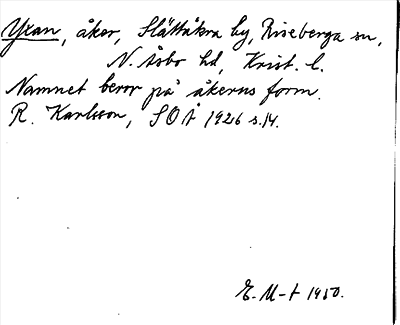 Yxan, åker, Slättåkra by, Riseberga sn,
N. Åsbo hd, Krist. l.
Namnet beror på åkerns form.
R. Karlsson, SOÅ 1926 s.14.
E. M-t 1950.